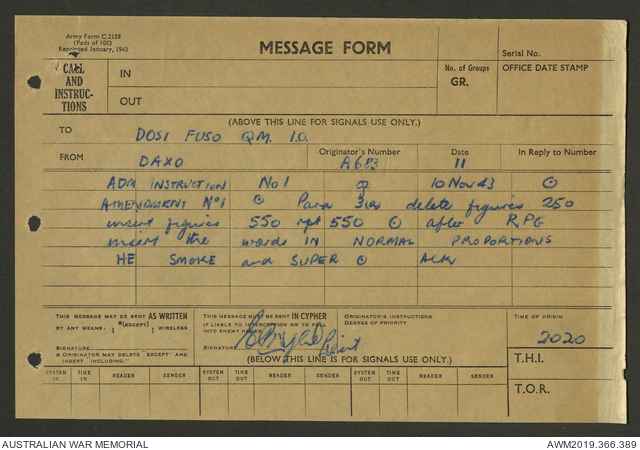 Army Form C.2128
(Pads of 100)
Reprinted January, 1943
MESSAGE FORM
Serial No.
CALL AND INSTRUC-TIONS
IN
OUT
No. of Groups
GR.
OFFICE DATE STAMP
(ABOVE THIS LINE FOR SIGNALS USE ONLY.)
TO DOSI FUSO QM. I.O.
FROM DAXO
Originator's Number A683
Date 11
In Reply to Number
ADM INSTRUCTION No 1 of 10 Nov 43 ⊙
AMENDMENT No 1 ⊙ Para delete figures 250
insert figures 550 rpt 550 ⊙ after RPG
insert the words IN NORMAL PROPORTIONS
HE SMOKE and SUPER ⊙ ACK
THIS MESSAGE MAY BE SENT AS WRITTEN
BY ANY MEANS: { *(EXCEPT) } WIRELESS
SIGNATURE
ORIGINATOR MAY DELETE "EXCEPT" AND INSERT "INCLUDING."
THIS MESSAGE MUST BE SENT IN CYPHER
IF LIABLE TO INTERCEPTION OR TO FALL INTO ENEMY HANDS.
SIGNATURE
ORIGINATOR'S INSTRUCTIONS
DEGREE OF PRIORITY
TIME OF ORIGIN
2020
(BELOW THIS LINE IS FOR SIGNALS USE ONLY.)
T.H.I.
T.O.R.
SYSTEM IN TIME IN READER SENDER SYSTEM OUT TIME OUT READER SENDER SYSTEM OUT TIME OUT READER SENDER
AUSTRALIAN WAR MEMORIAL
AWM2019.366.389